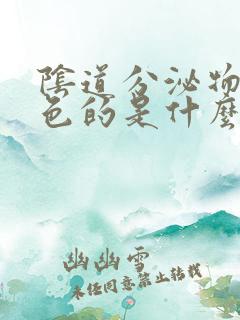 陰道分泌物
色的是什麼
幽幽雪
未任同意禁止转载